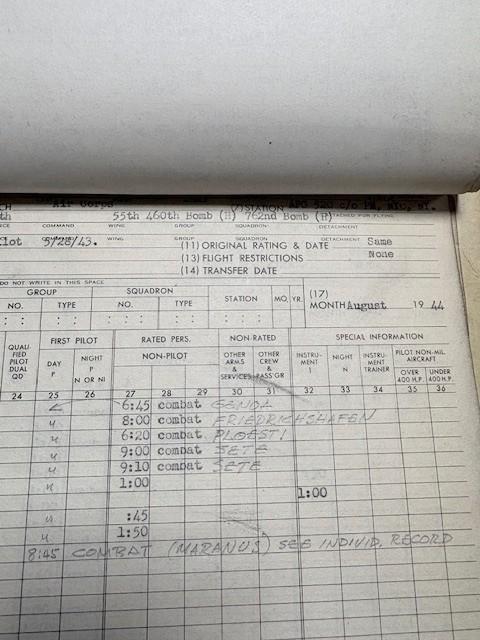 CH Air Corps (7) STATION APO 520 c/o PM, NYC, NY.
th 55th 460th Bomb (H) 762nd Bomb (H) ATTACHED FOR FLYING
CE COMMAND WING GROUP SQUADRON DETACHMENT
lot 5/28/43. (11) ORIGINAL RATING & DATE Same
WING GROUP SQUADRON DETACHMENT
(13) FLIGHT RESTRICTIONS None
(14) TRANSFER DATE
DO NOT WRITE IN THIS SPACE
GROUP SQUADRON STATION MO. YR. (17)
NO. TYPE NO. TYPE MONTH August 19 44
QUALI- FIRST PILOT RATED PERS. NON-RATED SPECIAL INFORMATION
FIED PILOT DUAL QD DAY P NIGHT P N OR NI NON-PILOT OTHER ARMS & SERVICES OTHER CREW & PASS'GR INSTRU- MENT I NIGHT N INSTRU- MENT TRAINER PILOT NON-MIL. AIRCRAFT
OVER 400 H.P. UNDER 400 H.P.
24 25 26 27 28 29 30 31 32 33 34 35 36
6:45 combat GENOA
4 8:00 combat FRIEDRICHSHAFEN
4 6:20 combat PLOESTI
4 9:00 combat SETE
4 9:10 combat SETE
4 1:00
1:00
4 :45
4 1:50
8:45 COMBAT (MARANUS) SEE INDIVID. RECORD